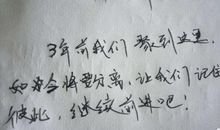 3年前我们聚到这里,
如今将要分离,让我们记住
彼此,继续前进吧!